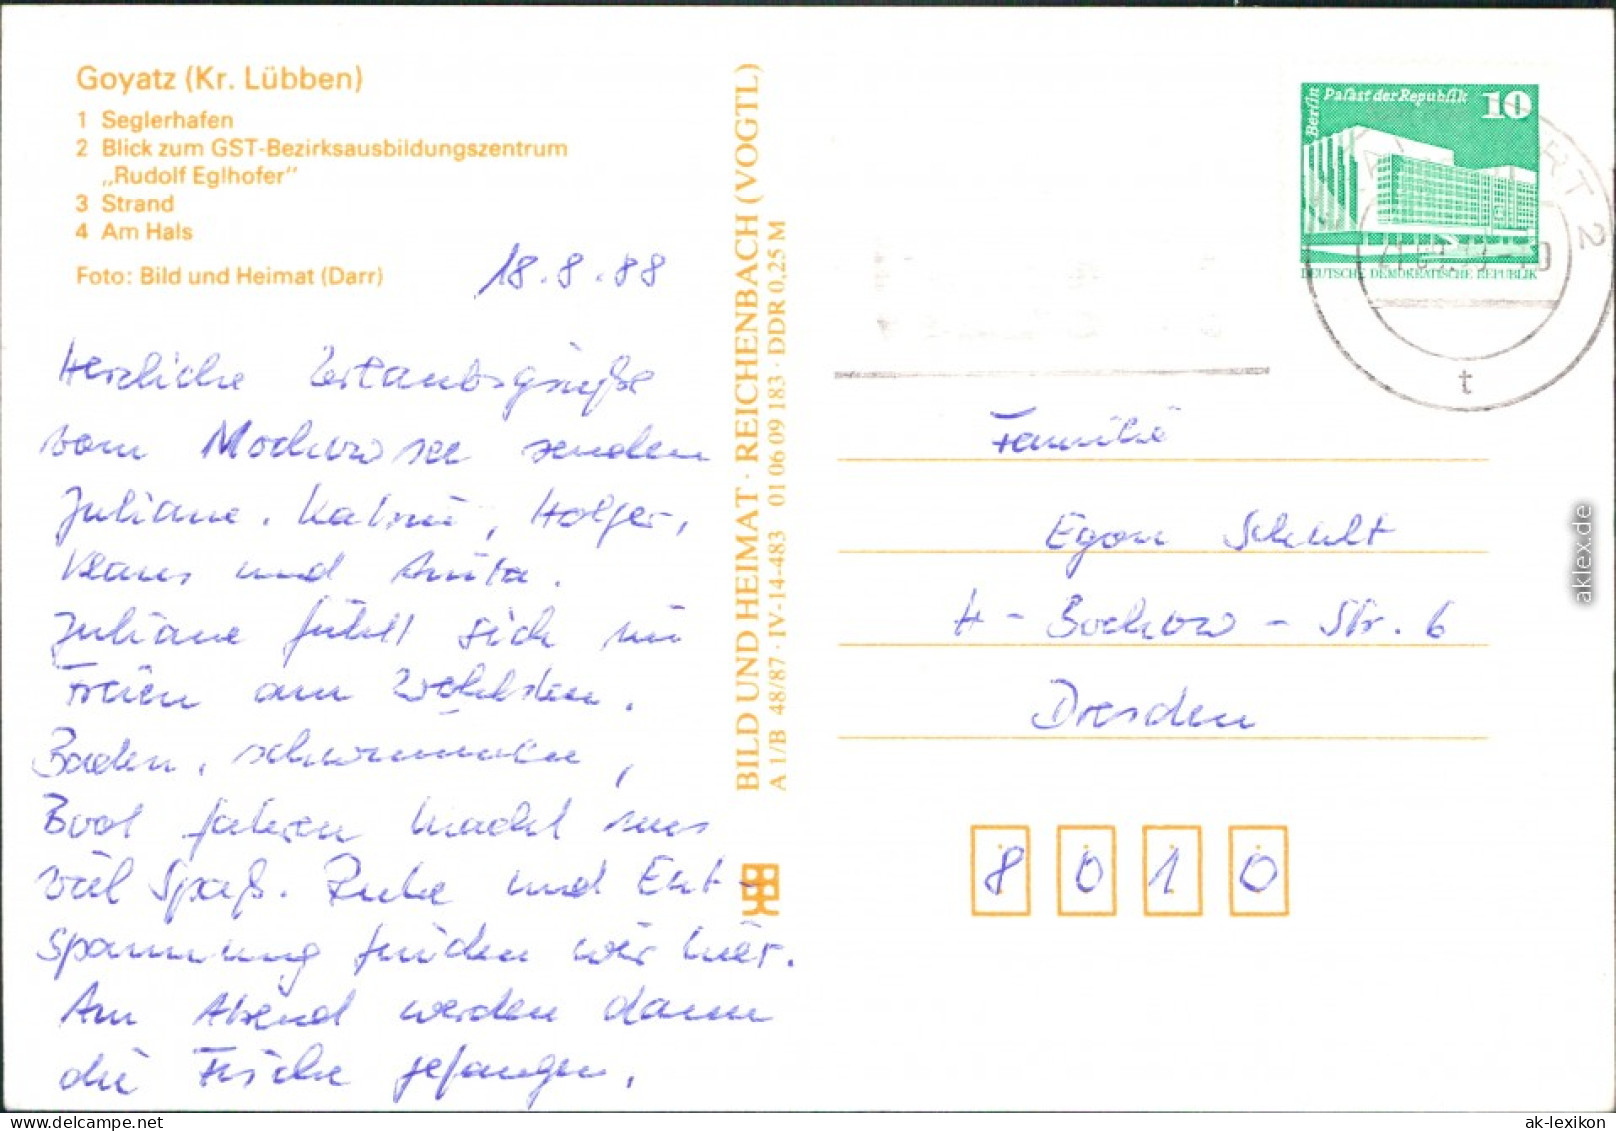 Goyatz (Kr. Lübben)
1 Seglerhafen
2 Blick zum GST-Bezirksausbildungszentrum
„Rudolf Eglhofer"
3 Strand
4 Am Hals
Foto: Bild und Heimat (Darr)
18.8.88
Herzliche Urlaubsgrüße
vom Mochowsee senden
Juliane, Katrin, Holger,
Klaus und Anita.
Juliane fühlt sich im
Freien am Wohlsten.
Baden, schwimmen,
Boot fahren macht uns
viel Spaß. Ruhe und Ent-
spannung finden wir hier.
Am Abend werden dann
die Fische gefangen.
BILD UND HEIMAT · REICHENBACH (VOGTL)
A 1/B 48/87 · IV-14-483 01 06 09 183 · DDR 0,25 M
Berlin
Palast der Republik 10
DEUTSCHE DEMOKRATISCHE REPUBLIK
2
t
Familie
Egon
H - Bochow - Str. 6
Dresden
8 0 1 0
aklex.de
ak-lexikon